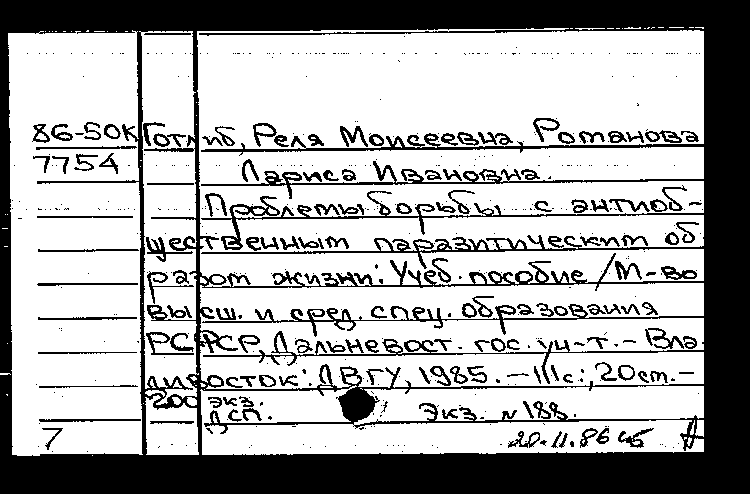 86-50К Готлиб, Реля Моисеевна, Романова
7754 Лариса Ивановна.
Проблемы борьбы с антиоб-
щественным паразитическим об
разом жизни: Учеб. пособие / М-во
высш. и сред. спец. образования
РСФСР, Дальневост. гос. ун-т. - Вла
дивосток: ДВГУ, 1985. - 111с.; 20см. -
200 экз.
ДСП. Экз. №188.
7 20.11.86